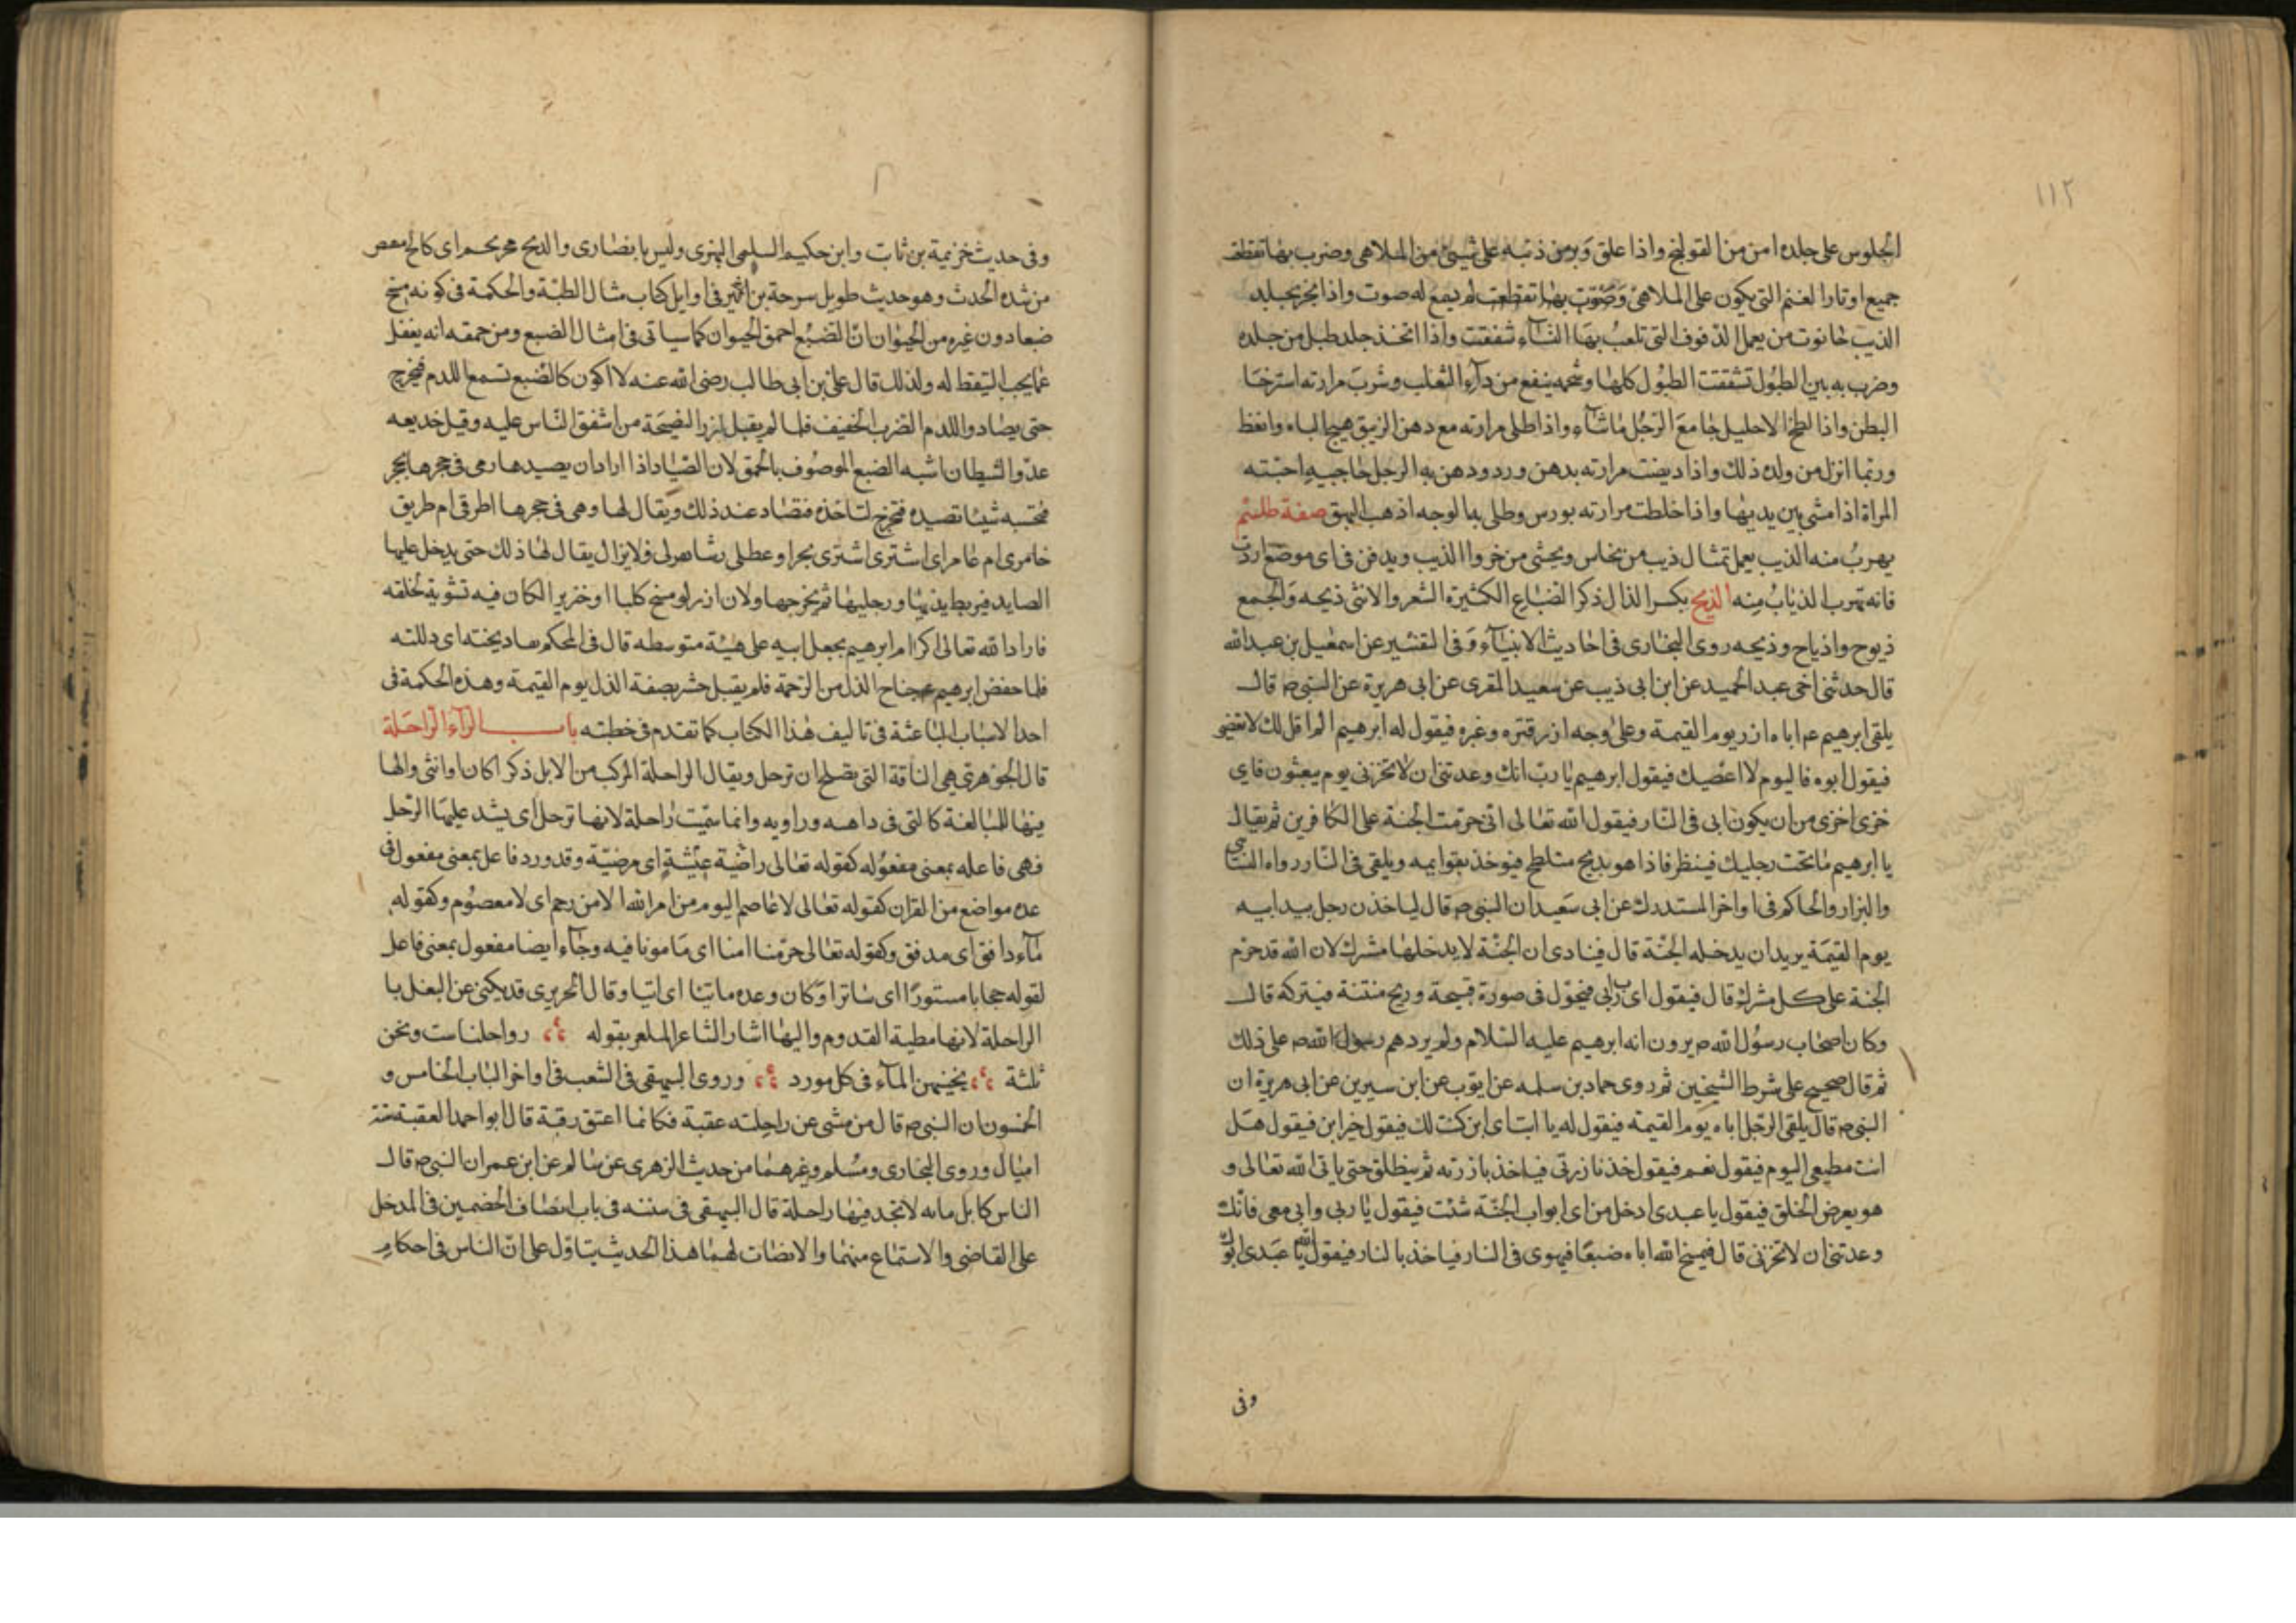 ١١٢
الجلوس على جلده امن من القولنج واذا علق وبر من ذنبه على شيئ من الملاهى وضرب بها تقطعت
جميع اوتار الغنم التى يكون على الملاهى وصوت بها تقطعت لم يسمع له صوت واذا بخر بجلد
الذيب حانوت من يعمل الدفوف التى تلعب بها النسآء تشققت واذا اتخذ جلد طبل من جلده
وضرب به بين الطبول تشققت الطبول كلها وشحمه ينفع من دآء الثعلب وشرب مرارته استرخا
البطن واذا لطخ الاحليل جامع الرجل ماشآء واذا طلى مرارته مع دهن الزنبق هيج الباه وانعظ
وربما انزل من ولده ذلك واذا ديفت مرارته بدهن ورد ودهن به الرجل حاجبيه احبته
المراة اذا مشى بين يديها واذا خلطت مرارته بورس وطلى بها الوجه اذهب البهق صفة طلسم
يهرب منه الذيب يعمل تمثال ذيب من نحاس ويحشى من خروا الذيب ويدفن فى اى موضع اردت
فانه تهرب الذياب منه الذيح بكسر الذال ذكر الضباع الكثيرة الشعر والانثى ذيحه والجمع
ذيوح واذياح وذيحه روى البخارى فى احاديث الانبيآء وفى التفسير عن اسمعيل بن عبدالله
قال حدثنى اخى عبد الحميد عن ابن ابى ذيب عن سعيد المقرى عن ابى هريرة عن النبى ص قال
يلقى ابرهيم عم اباه ازر يوم القيمة وعلى وجه ازر قترة وغبره فيقول له ابرهيم الم اقل لك لا تعصنى
فيقول ابوه فاليوم لا اعصيك فيقول ابرهيم يا رب انك وعدتنى ان لا تخزنى يوم يبعثون فاى
خزى اخزى من ان يكون ابى فى النار فيقول الله تعالى انى حرمت الجنة على الكافرين ثم يقال
يا ابرهيم ما تحت رجليك فينظر فاذا هو بذيح متلطح فيوخذ بقوايمه ويلقى فى النار رواه النسائى
والبزار والحاكم فى اواخر المستدرك عن ابى سعيد ان النبى ص قال لياخذن رجل بيد ابيه
يوم القيمة يريد ان يدخله الجنة قال فينادى ان الجنة لا يدخلها مشرك لان الله قد حرم
الجنة على كل مشرك قال فيقول اى رب ابى فيحول فى صورة قبيحة وريح منتنة فيتركه قال
وكان اصحاب رسول الله ص يرون انه ابرهيم عليه السلام ولم يردهم رسول الله ص على ذلك
ثم قال صحيح على شرط الشيخين ثم روى حماد بن سلمه عن ايوب عن ابن سيرين عن ابى هريرة ان
النبى ص قال يلقى الرجل اباه يوم القيمة فيقول له يا ابت اى ابن كنت لك فيقول خير ابن فيقول هل
انت مطيعى اليوم فيقول نعم فيقول خذ بازرتى فياخذ بازرته ثم ينطلق حتى ياتى الله تعالى و
هو يعرض الخلق فيقول يا عبدى ادخل من اى ابواب الجنة شئت فيقول يا ربى وابى معى فانك
وعدتنى ان لا تخزنى قال فيمسخ الله اباه ضبعا فيهوى فى النار فياخذ بالنار فيقول الله يا عبدى ابوك
وفى
وفى حديث خزيمة بن ثابت وابن حكيم السلمى البهزى وليس بانصارى والذيح محرنجم اى كالح
من شده الحدث وهو حديث طويل سرحة بن الاثير فى اوايل كتاب مثال الطبة والحكمة فى كونه مسخ
ضبعا دون غيره من الحيوان ان الضبع احمق الحيوان كما سياتى فى امثال الضبع ومن حمقه انه يغفل
عما يجب التيقظ له ولذلك قال على بن ابى طالب رضى الله عنه لا اكون كالضبع تسمع اللدم فيخرج
حتى يصاد واللدم الضرب الخفيف فلما لم يقبل ازر النصيحة من اشفق الناس عليه وقبل خديعه
عدو الشيطان اشبه الضبع الموصوف بالحمق لان الصياد اذا اراد ان يصيدها رمى فى جحرها بحجر
فتحسبه شيئا تصيده فتخرج لتاخذه فتصاد عند ذلك ويقال لها وهى فى جحرها اطرقى ام طريق
خامرى ام عامر اى اشترى اشترى بجرا وعطلى وشاهرلى فلا يزال يقال لها ذلك حتى يدخل عليها
الصايد فيربط يديها ورجليها ثم يخرجها ولان ازر لو مسخ كلبا او خنزيرا لكان فيه تشويه لخلقه
فاراد الله تعالى اكرام ابرهيم بجعل ابيه على هيئة متوسطه قال فى المحكم سا ديخته اى دللته
فلما خفض ابرهيم عم جناح الذل من الرحمة فلم يقبل حشر بصفة الذل يوم القيمة وهذه الحكمة فى
احد الاسباب الباعثة فى تاليف هذا الكتاب كما تقدم فى خطبته باب الرآء الراحلة
قال الجوهرى هى الناقة التى تصلح ان ترحل ويقال الراحلة المركب من الابل ذكرا كان او انثى والها
فيها للمبالغة كالتى فى داهيه وراويه وانما سميت راحلة لانها ترحل اى يشد عليها الرحل
فهى فاعله بمعنى مفعوله كقوله تعالى راضية عيشة اى مرضية وقد ورد فاعل بمعنى مفعول فى
عده مواضع من القران كقوله تعالى لا عاصم اليوم من امر الله الا من رحم اى لا معصوم وكقوله
مآء دافق اى مدفق وكقوله تعالى حرما امنا اى مامونا فيه وجآء ايضا مفعول بمعنى فاعل
لقوله حجابا مستورا اى ساترا وكان وعده ماتيا اى اتيا وقال الحريرى قد يكنى عن البغل با
الراحلة لانها مطية القدوم واليها اشار الشاعر الملغر بقوله رواحلنا ست ونحن
ثلثة نجنبهن المآء فى كل مورد وروى البيهقى فى الشعب فى اواخر الباب الخامس و
الخمسون ان النبى ص قال من مشى عن راحلته عقبة فكانما اعتق رقبة قال ابو احمد العقبة ستة
اميال وروى البخارى ومسلم وغيرهما من حديث الزهرى عن سالم عن ابن عمر ان النبى ص قال
الناس كابل مايه لا تجد فيها راحلة قال البيهقى فى سننه فى باب انصاف الخصمين فى المدخل
على القاضى والاستماع منهما والانصات لهما هذا الحديث يتاول على ان الناس فى احكام